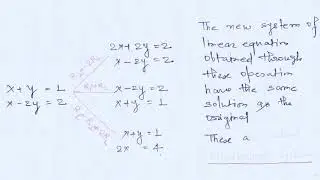 2x+2y=2
x-2y=2
x+y=1
x-2y=2
x-2y=2
x+y=1
x+y=1
2x =4
The new system of
linear equation
obtained through
these operation
have the same
solution as the
original
These a